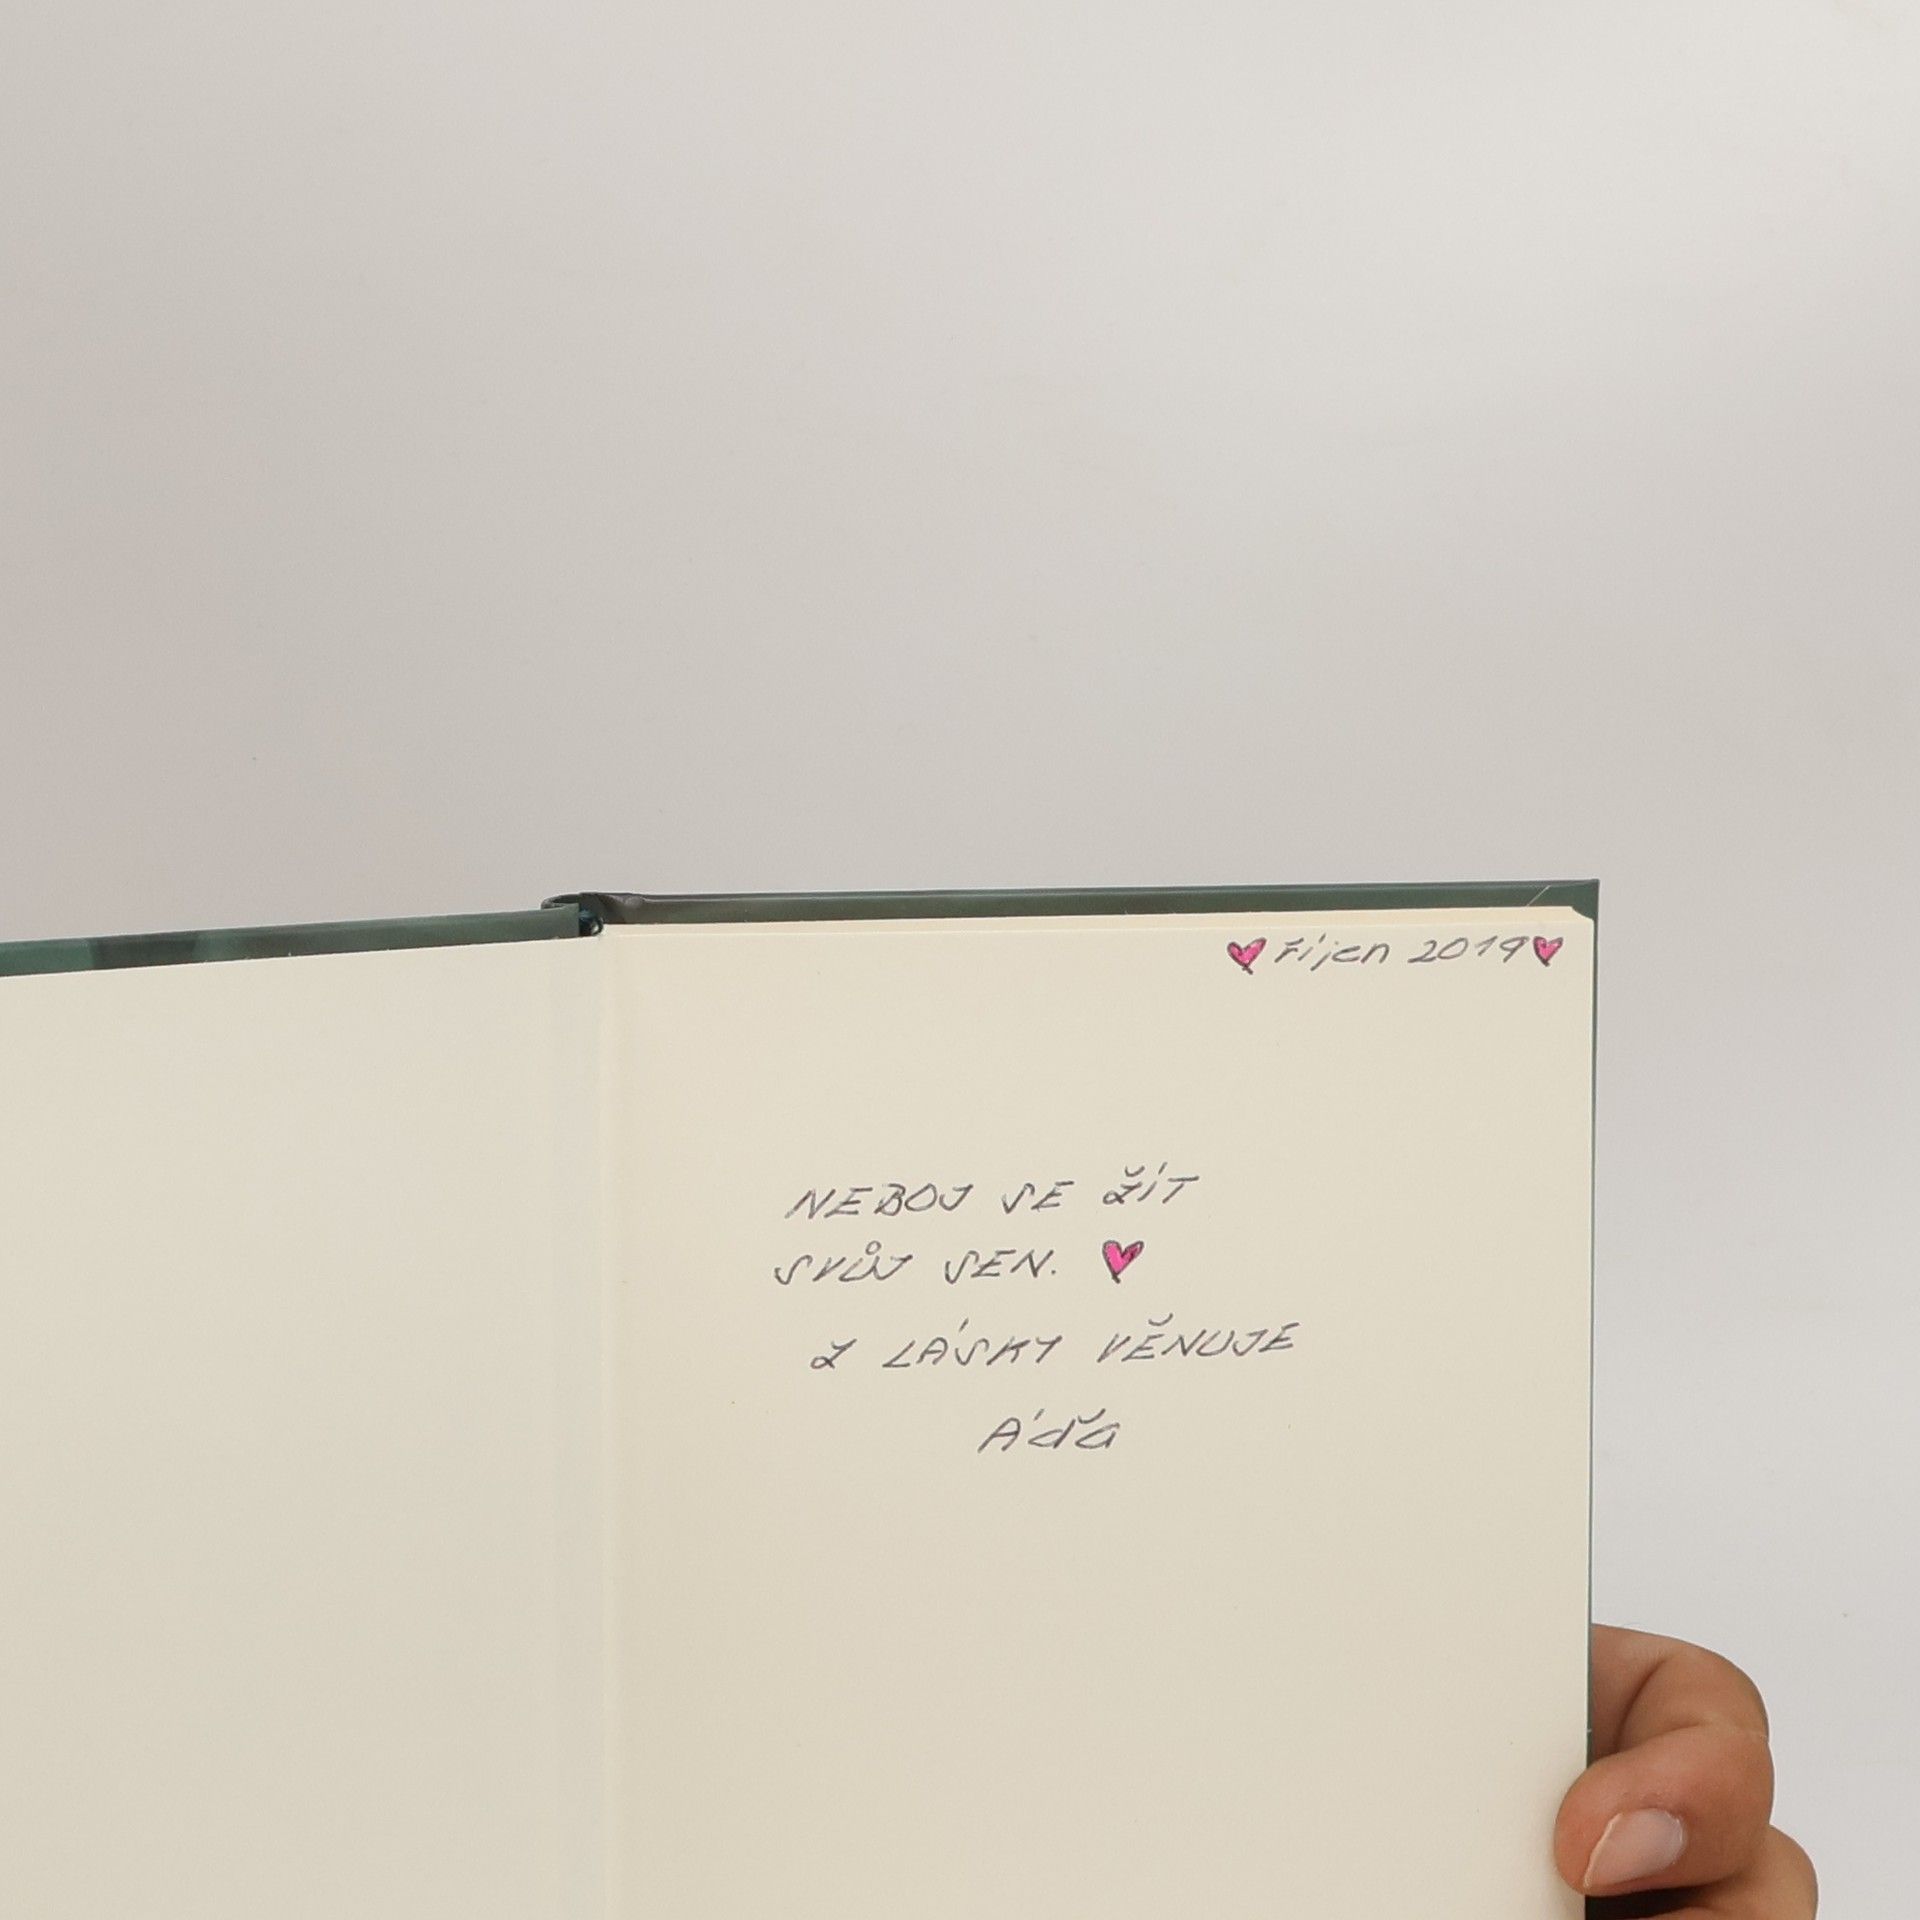 ♥ říjen 2019 ♥
NEBOJ SE ŽÍT
SVŮJ SEN. ♥
Z LÁSKY VĚNUJE
Áďa